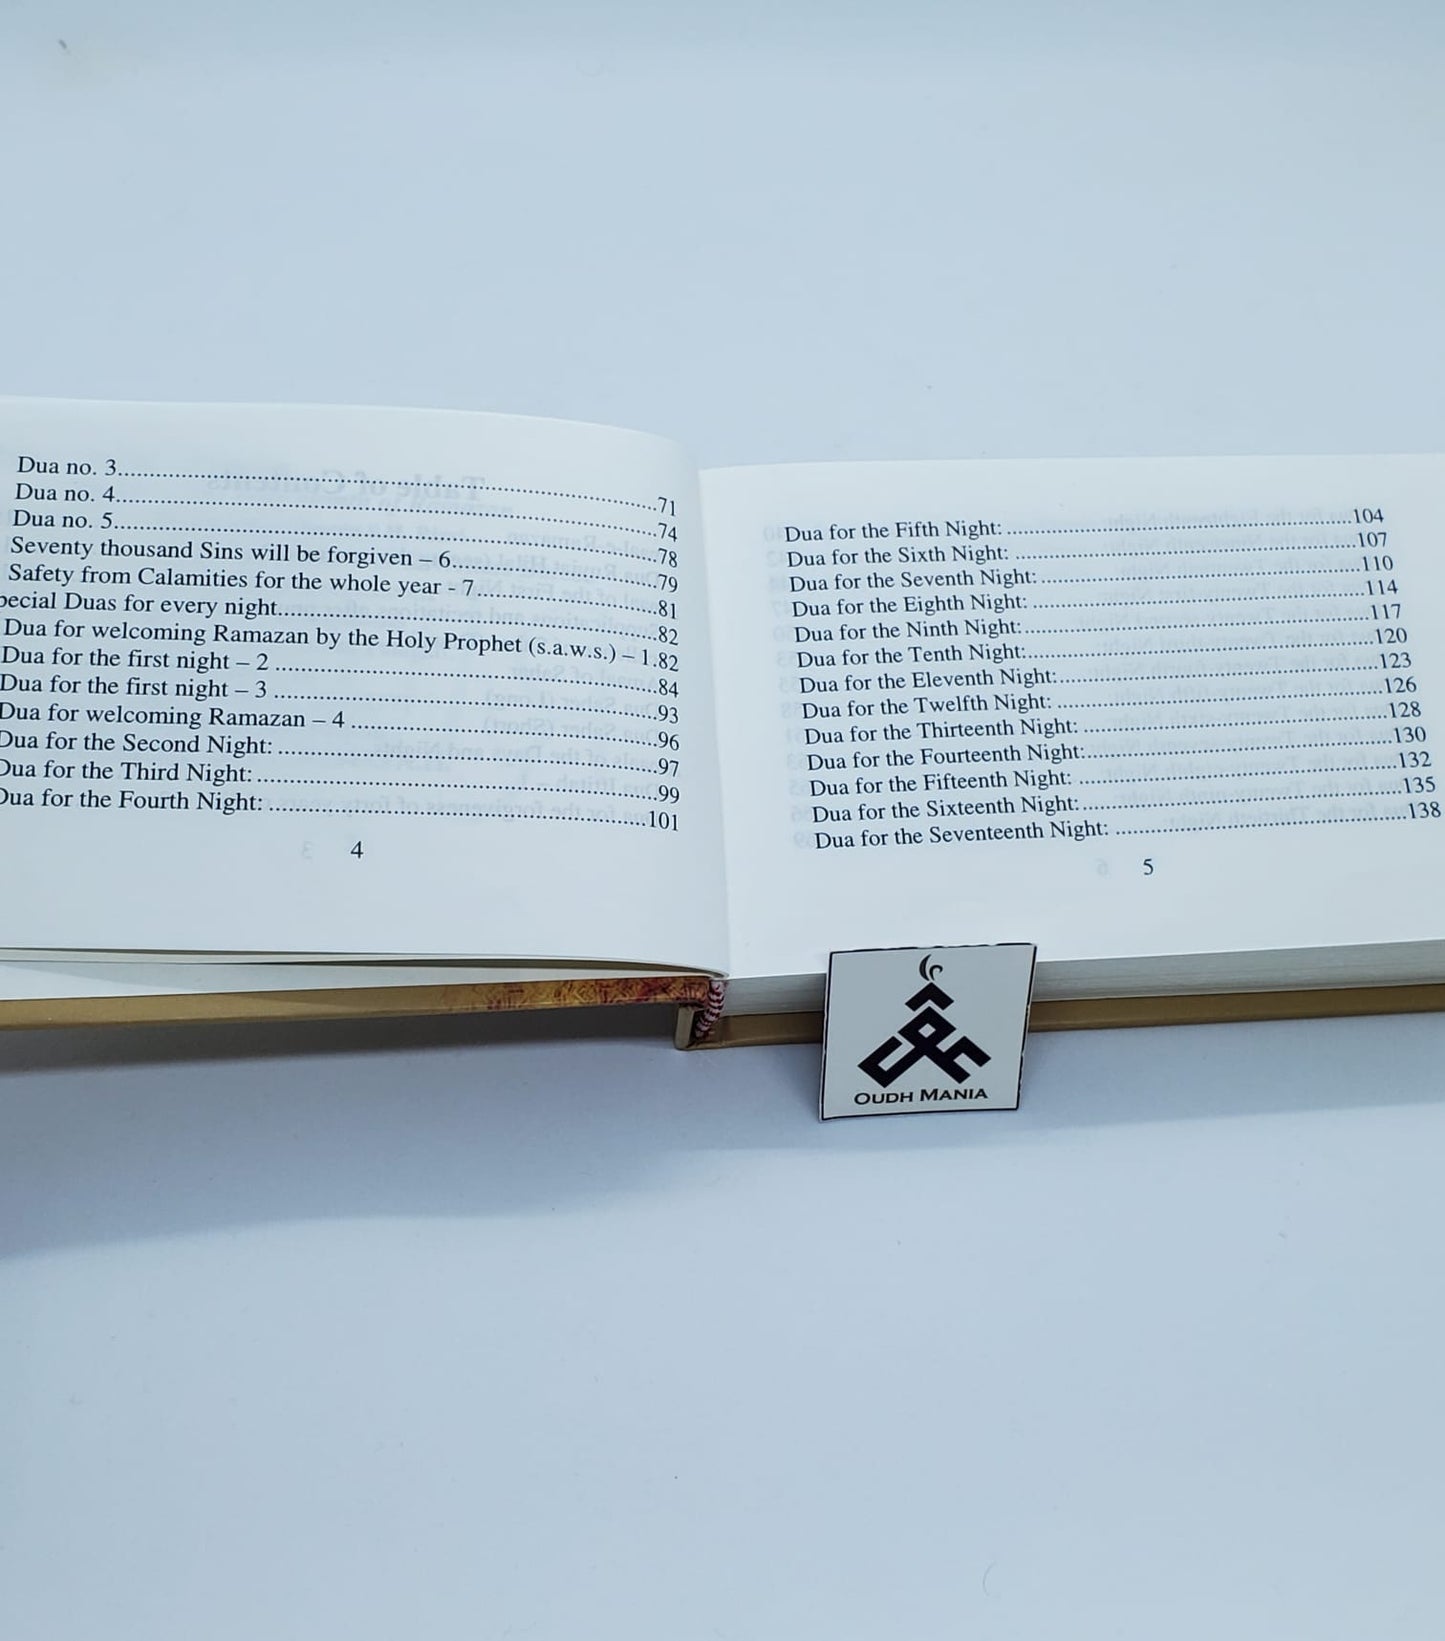 Dua no. 3..........71
Dua no. 4..........74
Dua no. 5..........78
Seventy thousand Sins will be forgiven – 6..........79
Safety from Calamities for the whole year - 7..........81
pecial Duas for every night..........82
Dua for welcoming Ramazan by the Holy Prophet (s.a.w.s.) – 1.82
Dua for the first night – 2..........84
Dua for the first night – 3..........93
Dua for welcoming Ramazan – 4..........96
Dua for the Second Night:..........97
Dua for the Third Night:..........99
Dua for the Fourth Night:..........101
4
Dua for the Fifth Night:..........104
Dua for the Sixth Night:..........107
Dua for the Seventh Night:..........110
Dua for the Eighth Night:..........114
Dua for the Ninth Night:..........117
Dua for the Tenth Night:..........120
Dua for the Eleventh Night:..........123
Dua for the Twelfth Night:..........126
Dua for the Thirteenth Night:..........128
Dua for the Fourteenth Night:..........130
Dua for the Fifteenth Night:..........132
Dua for the Sixteenth Night:..........135
Dua for the Seventeenth Night:..........138
5
OUDH MANIA